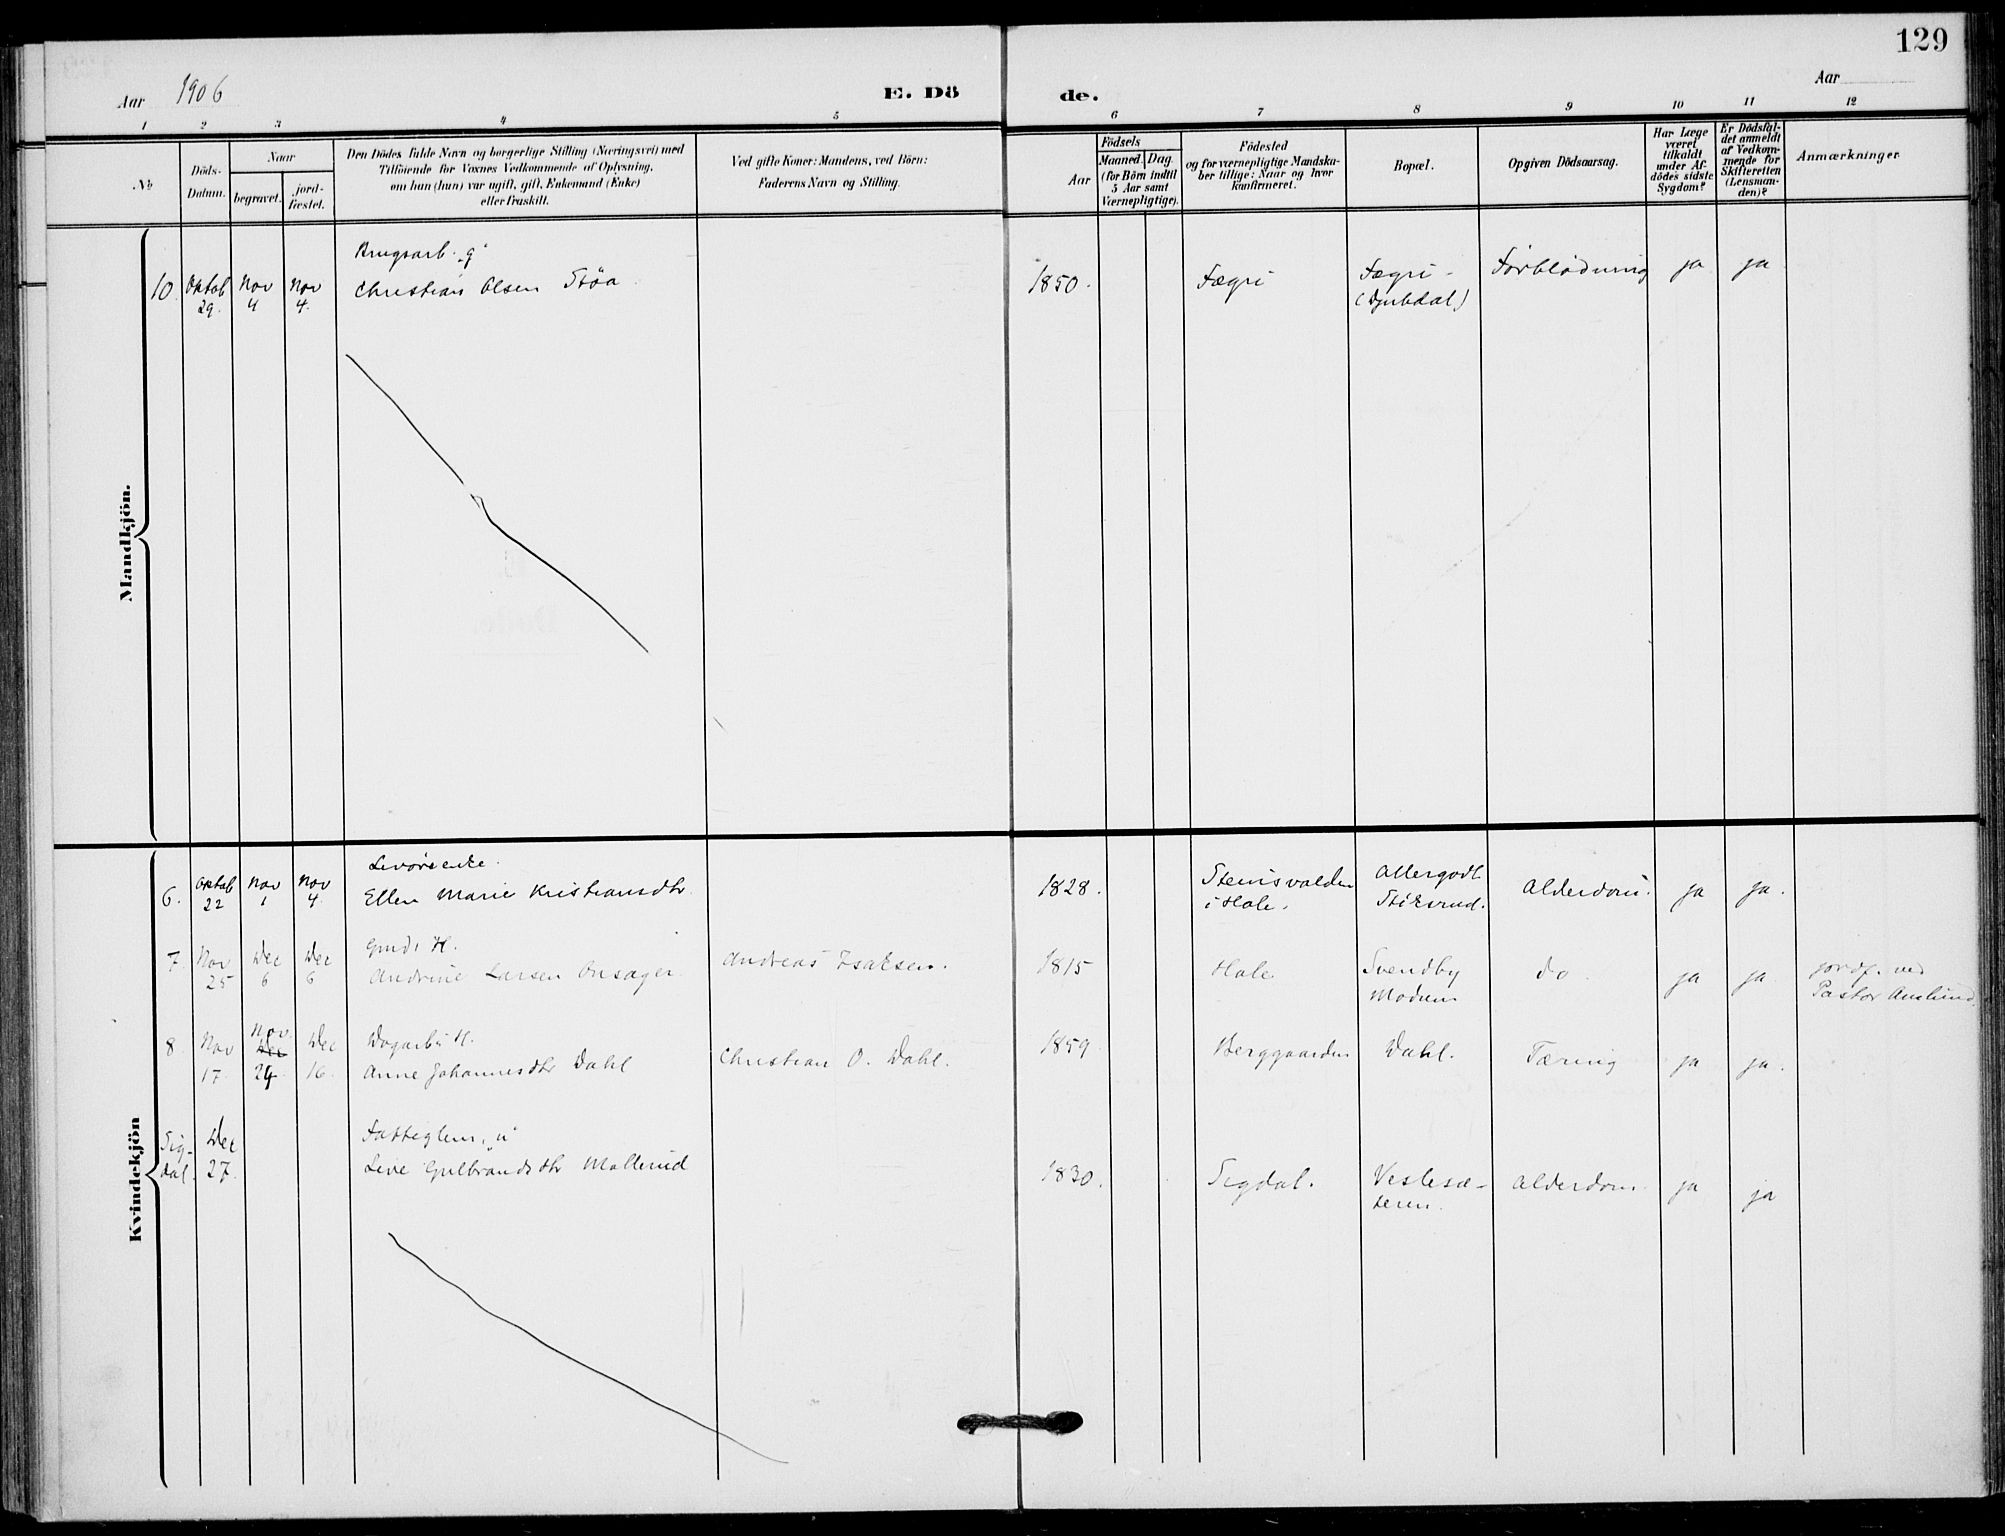 129
Aar 1906
E. Dö
de.
Aar
1 2 3 4 5 6 7 8 9 10 11 12
No
Döds-
Datum.
Naar
begravet.
jord-
fæstet.
Den Dödes fulde Navn og borgerlige Stilling (Næringsvei) med
Tilföiende for Voxnes Vedkommende af Oplysning,
om han (hun) var ugift, gift, Enkemand (Enke)
eller fraskilt.
Ved gifte Koner: Mandens, ved Börn:
Faderens Navn og Stilling.
Aar
Födsels
Maaned. Dag.
(for Börn indtil
5 Aar samt
Værnepligtige).
Födested
og for værnepligtige Mandska-
ber tillige: Naar og hvor
konfirmeret.
Bopæl.
Opgiven Dödsaarsag.
Har Læge
været
tilkaldt
under Af-
dödes sidste
Sygdom?
Er Dödsfal-
det anmeldt
af Vedkom-
mende for
Skifteretten
(Lensman-
den)?
Anmærkninger
Mandkjön.
Brugsarb. g
10. Oktob Nov Nov Christian Olsen Støa 1850. Fægri Fægri - Forblødning ja ja
29. 4 4. (Djubdal)
Kvindekjön
6. Oktob Nov Nov Ellen Marie Kristiansdtr. 1828. i Hole. Alderdom. ja ja.
22 1 4
7. Nov Dec Dec Andrine Larsen Onsager. Andreas Isaksen. 1815 Hole Svendby do ja ja
25 6 6 Modum Pastor
Nov.
8. Nov Dec Dec Dagarb. H.
17. 24. 16. Anne Johannesdtr Dahl Christian O. Dahl. 1859 Berggaarden Dahl. Tæring ja ja.
Sig- Dec
dal. 27. Live Gulbrandsdtr Mollerud 1830. Sigdal. Vestesæ- Alderdom ja ja
teren.